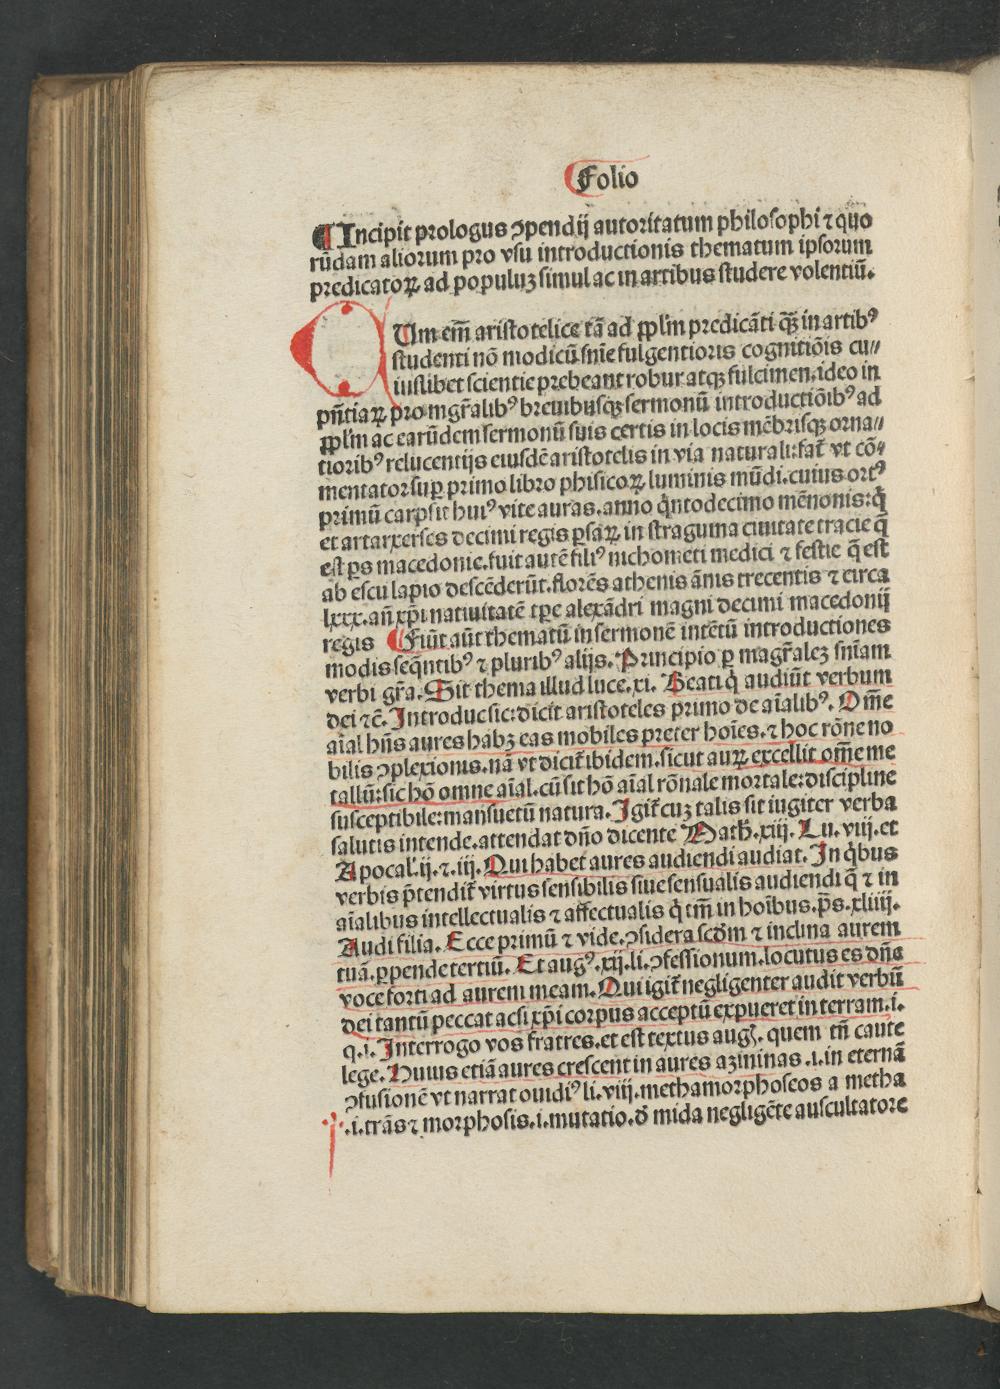 Folio
¶ Incipit prologus ꝯpendij autoritatum philosophi ⁊ quo
rūdam aliorum pro vsu introductionis thematum ipsorum
predicatoꝝ ad populuꝫ simul ac in artibus studere volentiū.
CUm em̄ aristotelice tā ad ꝓpl'm predicāti q̄ꝫ in artib⁹
studenti nō modicū sn̄ie fulgentioris cognitiōis cu//
iuslibet scientie prebeant robur atqꝫ fulcimen, ideo in
pn̄tiaꝝ pro mgr̄alib⁹ breuibusqꝫ sermonū introductiōib⁹ ad
ꝓpl'm ac earūdem sermonū suis certis in locis mēbrisqꝫ orna//
tiorib⁹ relucentijs eiusdē aristotelis in via naturali: fat̄ vt cō/
mentator sup̱ primo libro phisicoꝝ luminis mūdi. cuius ort⁹
primū carpsit hui⁹ vite auras. anno q̇ntodecimo mēnonis: q̇
et artarxerses decimi regis ꝑsaꝝ in straguma ciuitate tracie q̄
est ꝑs macedonie. fuit autē fili⁹ nichometi medici ⁊ festie q̄ est
ab escu lapio descēderūt. florēs athenis ānis trecentis ⁊ circa
lxxx. an̄ xp̄i natiuitatē tꝑe alexādri magni decimi macedonij
regis ¶ Fiūt aūt thematū in sermonē intētū introductiones
modis seq̄ntib⁹ ⁊ plurib⁹ alijs. Principio ꝑ magr̄alez sn̄iam
verbi gr̄a. Sit thema illud luce. xi. Beati q̇ audiūt verbum
dei ⁊c̄. Introduc sic: dicit aristoteles primo de aīalib⁹. Om̄e
aīal hn̄s aures habꝫ eas mobiles preter hoīes. ⁊ hoc rōne no
bilis ꝯplexionis. nā vt dicit̄ ibidem. sicut auꝝ excellit om̄e me
tallū: sic hō omne aīal. cū sit hō aīal rōnale mortale: discipline
susceptibile: mansuetū natura. Igit̄ cuz talis sit iugiter verba
salutis intende. attendat dn̄o dicente Math̄. xiij. Lu. viij. et
Apocal'. ij. ⁊. iij. Qui habet aures audiendi audiat. In q̇bus
verbis p̄tendit̄ virtus sensibilis siue sensualis audiendi q̄ ⁊ in
aīalibus intellectualis ⁊ affectualis q̇ tm̄ in hoībus. p̄s. xliiij.
Audi filia. Ecce primū ⁊ vide. ꝯsidera scd̄m ⁊ inclina aurem
tuā. ꝑpende tertiū. Et aug⁹. xij. li. ꝯfessionum. locutus es dn̄e
voce forti ad aurem meam. Qui igit̄ negligenter audit verbū
dei tantū peccat acsi xp̄i corpus acceptū expueret in terram. i.
q. i. Interrogo vos fratres. et est textus augꝭ. quem tn̄ caute
lege. Huius etiā aures crescent in aures azininas. i. in eternā
ꝯfusionē vt narrat ouidi⁹ li. viij. methamorphoseos a metha
.i. trās ⁊ morphosis. i. mutatio. ð mida negligēte auscultatore